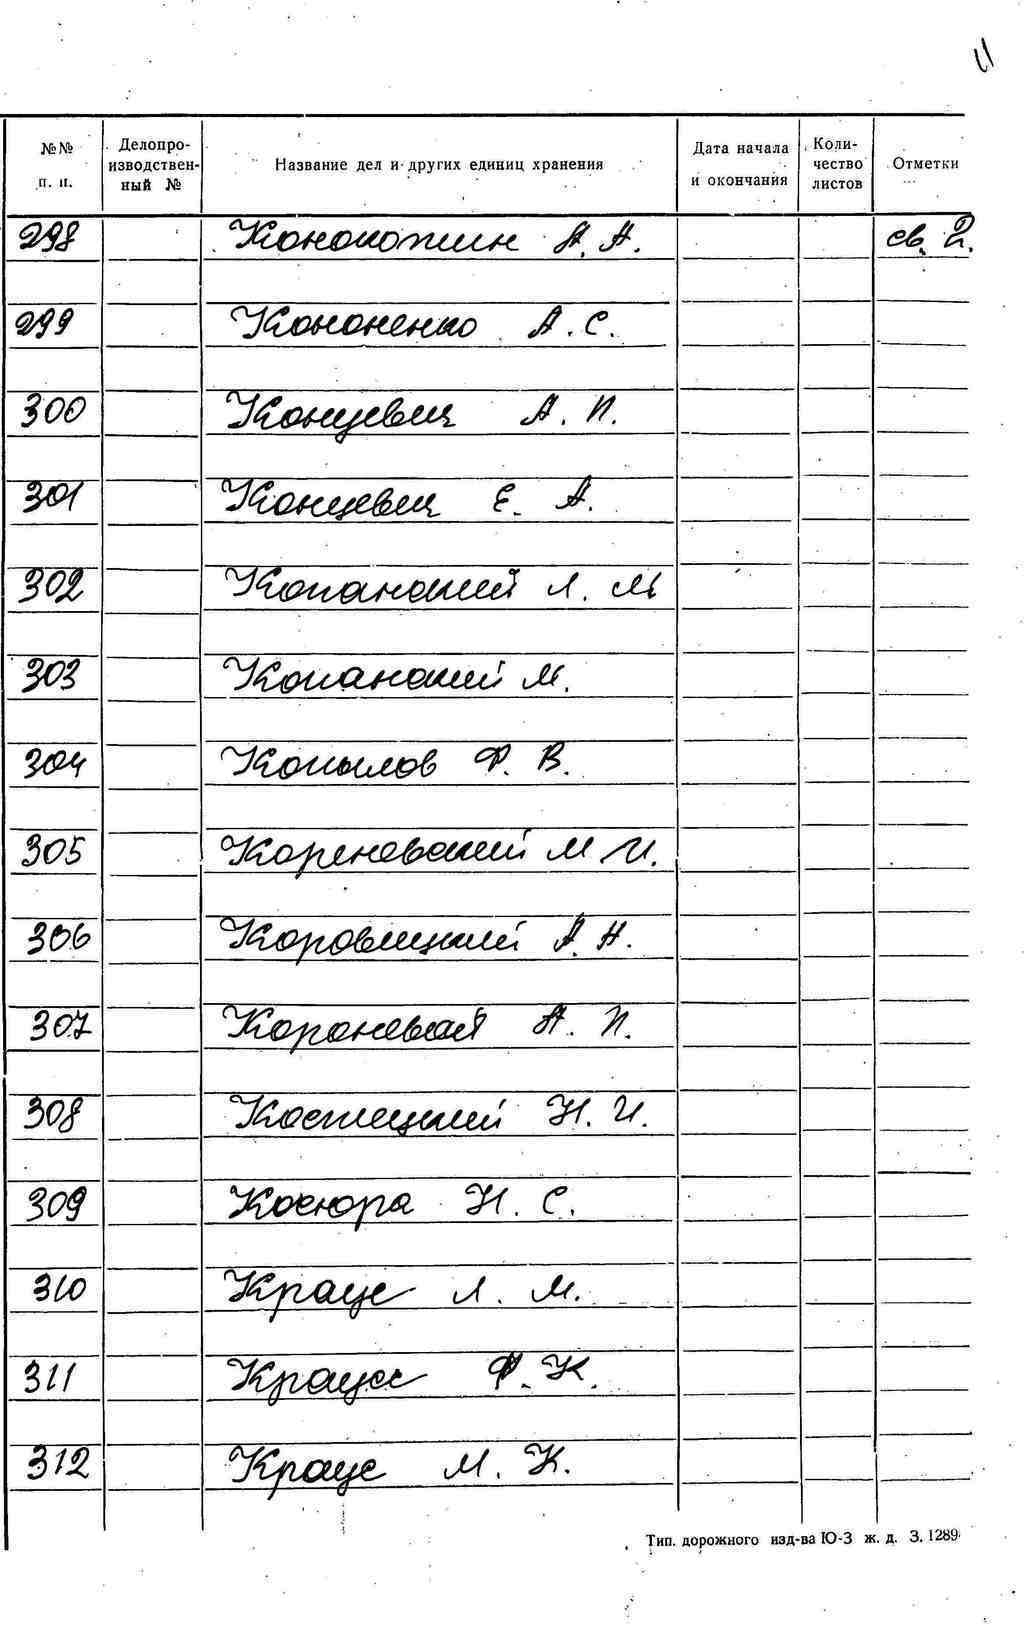 11
№№ п. п. Делопроизводственный № Название дел и других единиц хранения Дата начала и окончания Количество листов Отметки
298 Конокотин А. А. св. 2.
299 Кононенко А. С.
300 Концевич А. П.
301 Концевич Е. А.
302 Копанский Л. М
303 Копанский М.
304 Копылов Ф. В.
305 Кореневский М И.
306 Коровицкий А. Н.
307 Короневский А. П.
308 Костецкий Н. И.
309 Косюра Н. С.
310 Краус Л. М.
311 Краусс Ф. К.
312 Краус М. К.
Тип. дорожного изд-ва Ю-З ж. д. З. 1289